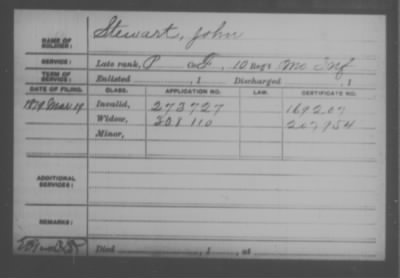 NAME OF SOLDIER: Stewart, John
SERVICE: Late rank, P Co. F, 10 Reg't Mo Inf
TERM OF SERVICE: Enlisted , 1 Discharged , 1
DATE OF FILING. CLASS. APPLICATION NO. LAW. CERTIFICATE NO.
1879 Mar 19 Invalid, 273727 169207
Widow, 308 110 207954
Minor,
ADDITIONAL SERVICES:
REMARKS:
Died , 1 , at